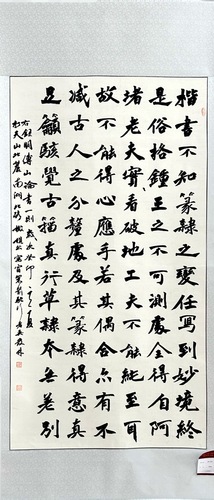 楷書不知篆隸之變任寫到妙境終
是俗格鍾王之不可測處全得自阿
堵老夫實看破地工夫不能純至耳
故不能得心應手若其偶合亦有不
減古人之分釐處及其篆隸得意真
足籲駭覺古籀真行草隸本無差別
右錄明傅山論書一則 歲次癸卯